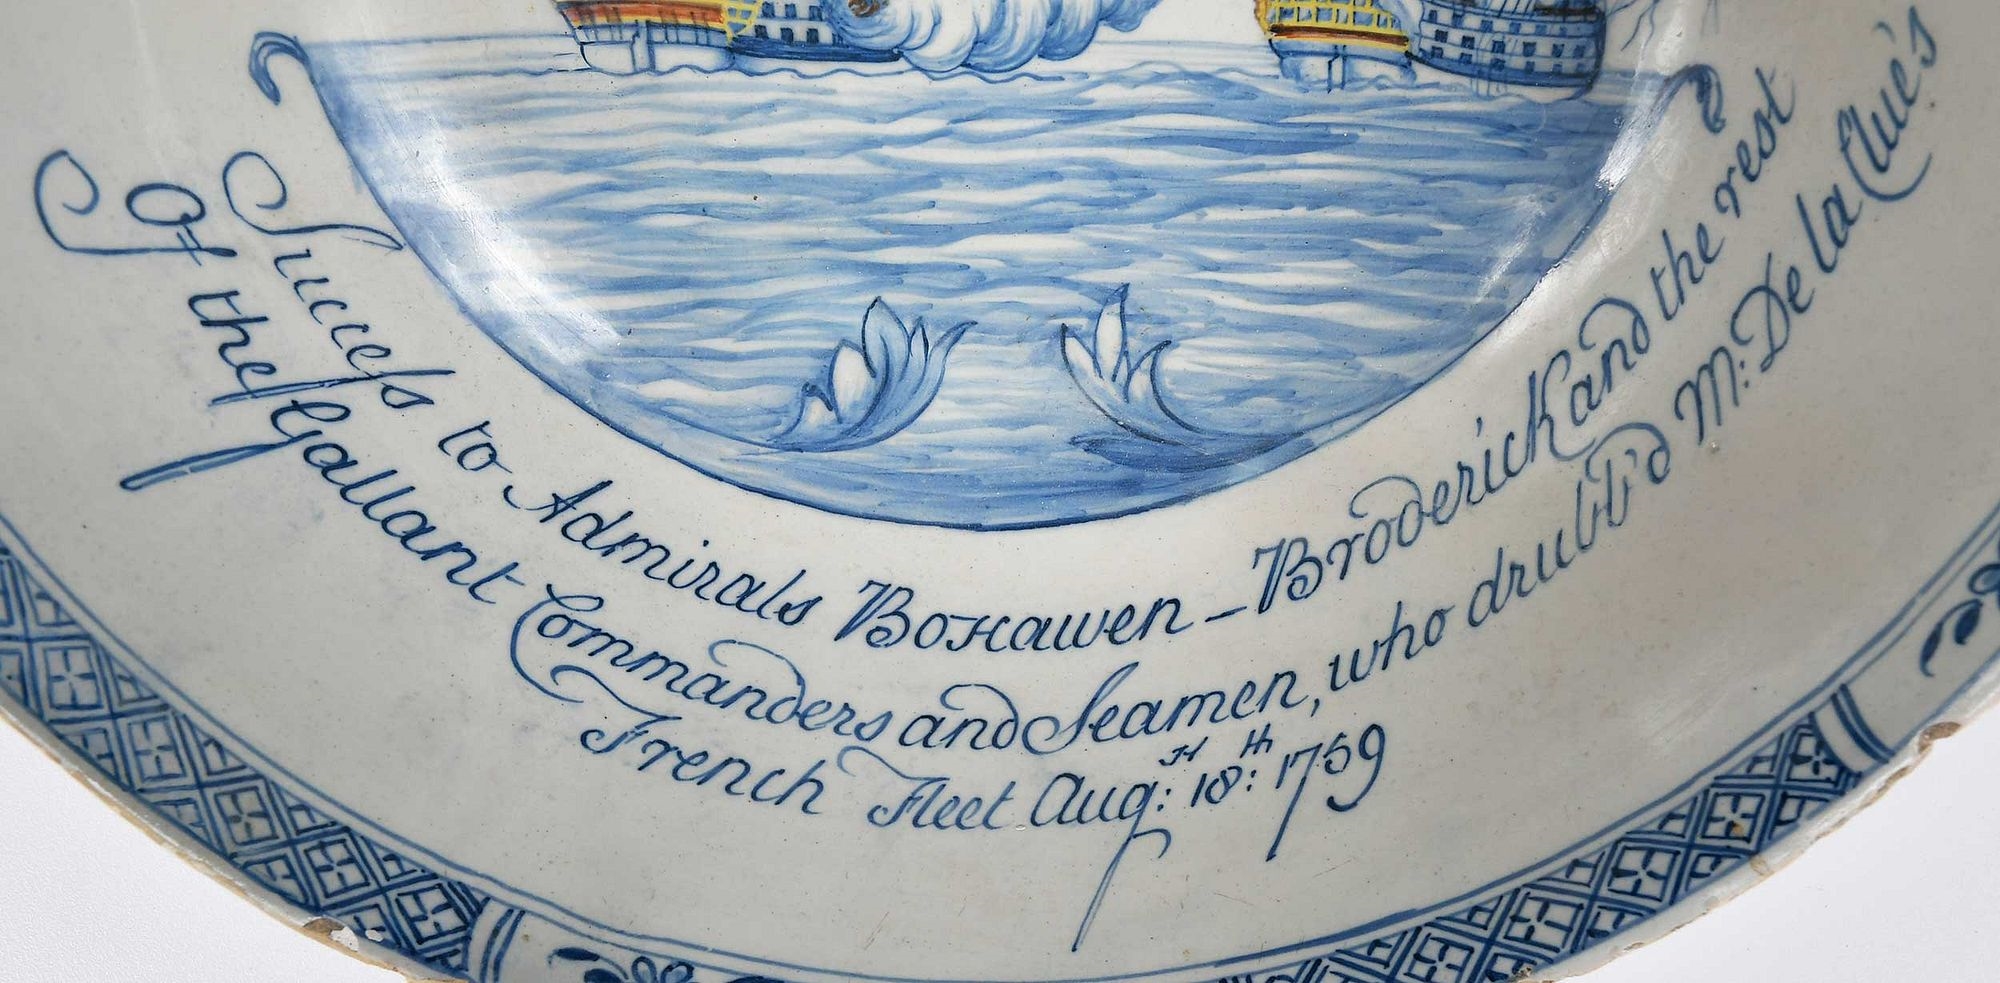 Success to Admirals Boscawen - Broderick and the rest
Of the Gallant Commanders and Seamen, who drubb'd M: De la Clue's
French Fleet Aug: 18:th 1759